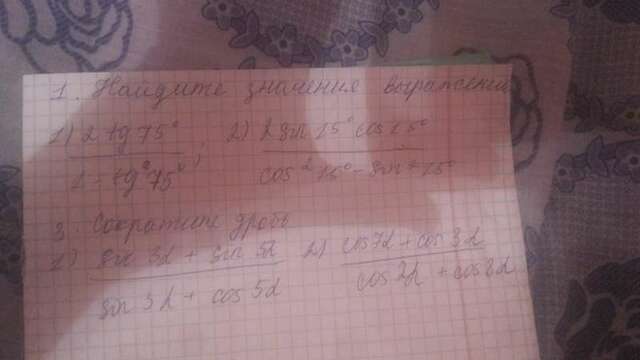 1. Найдите значения выражений
1) 2 tg 75° / 1 - tg²75° ; 2) 2 sin 15° cos 15° / cos² 15° - sin² 15°
3. Сократите дробь
1) sin 3α + sin 5α / sin 3α + cos 5α 2) cos 7α + cos 3α / cos 2α + cos 8α